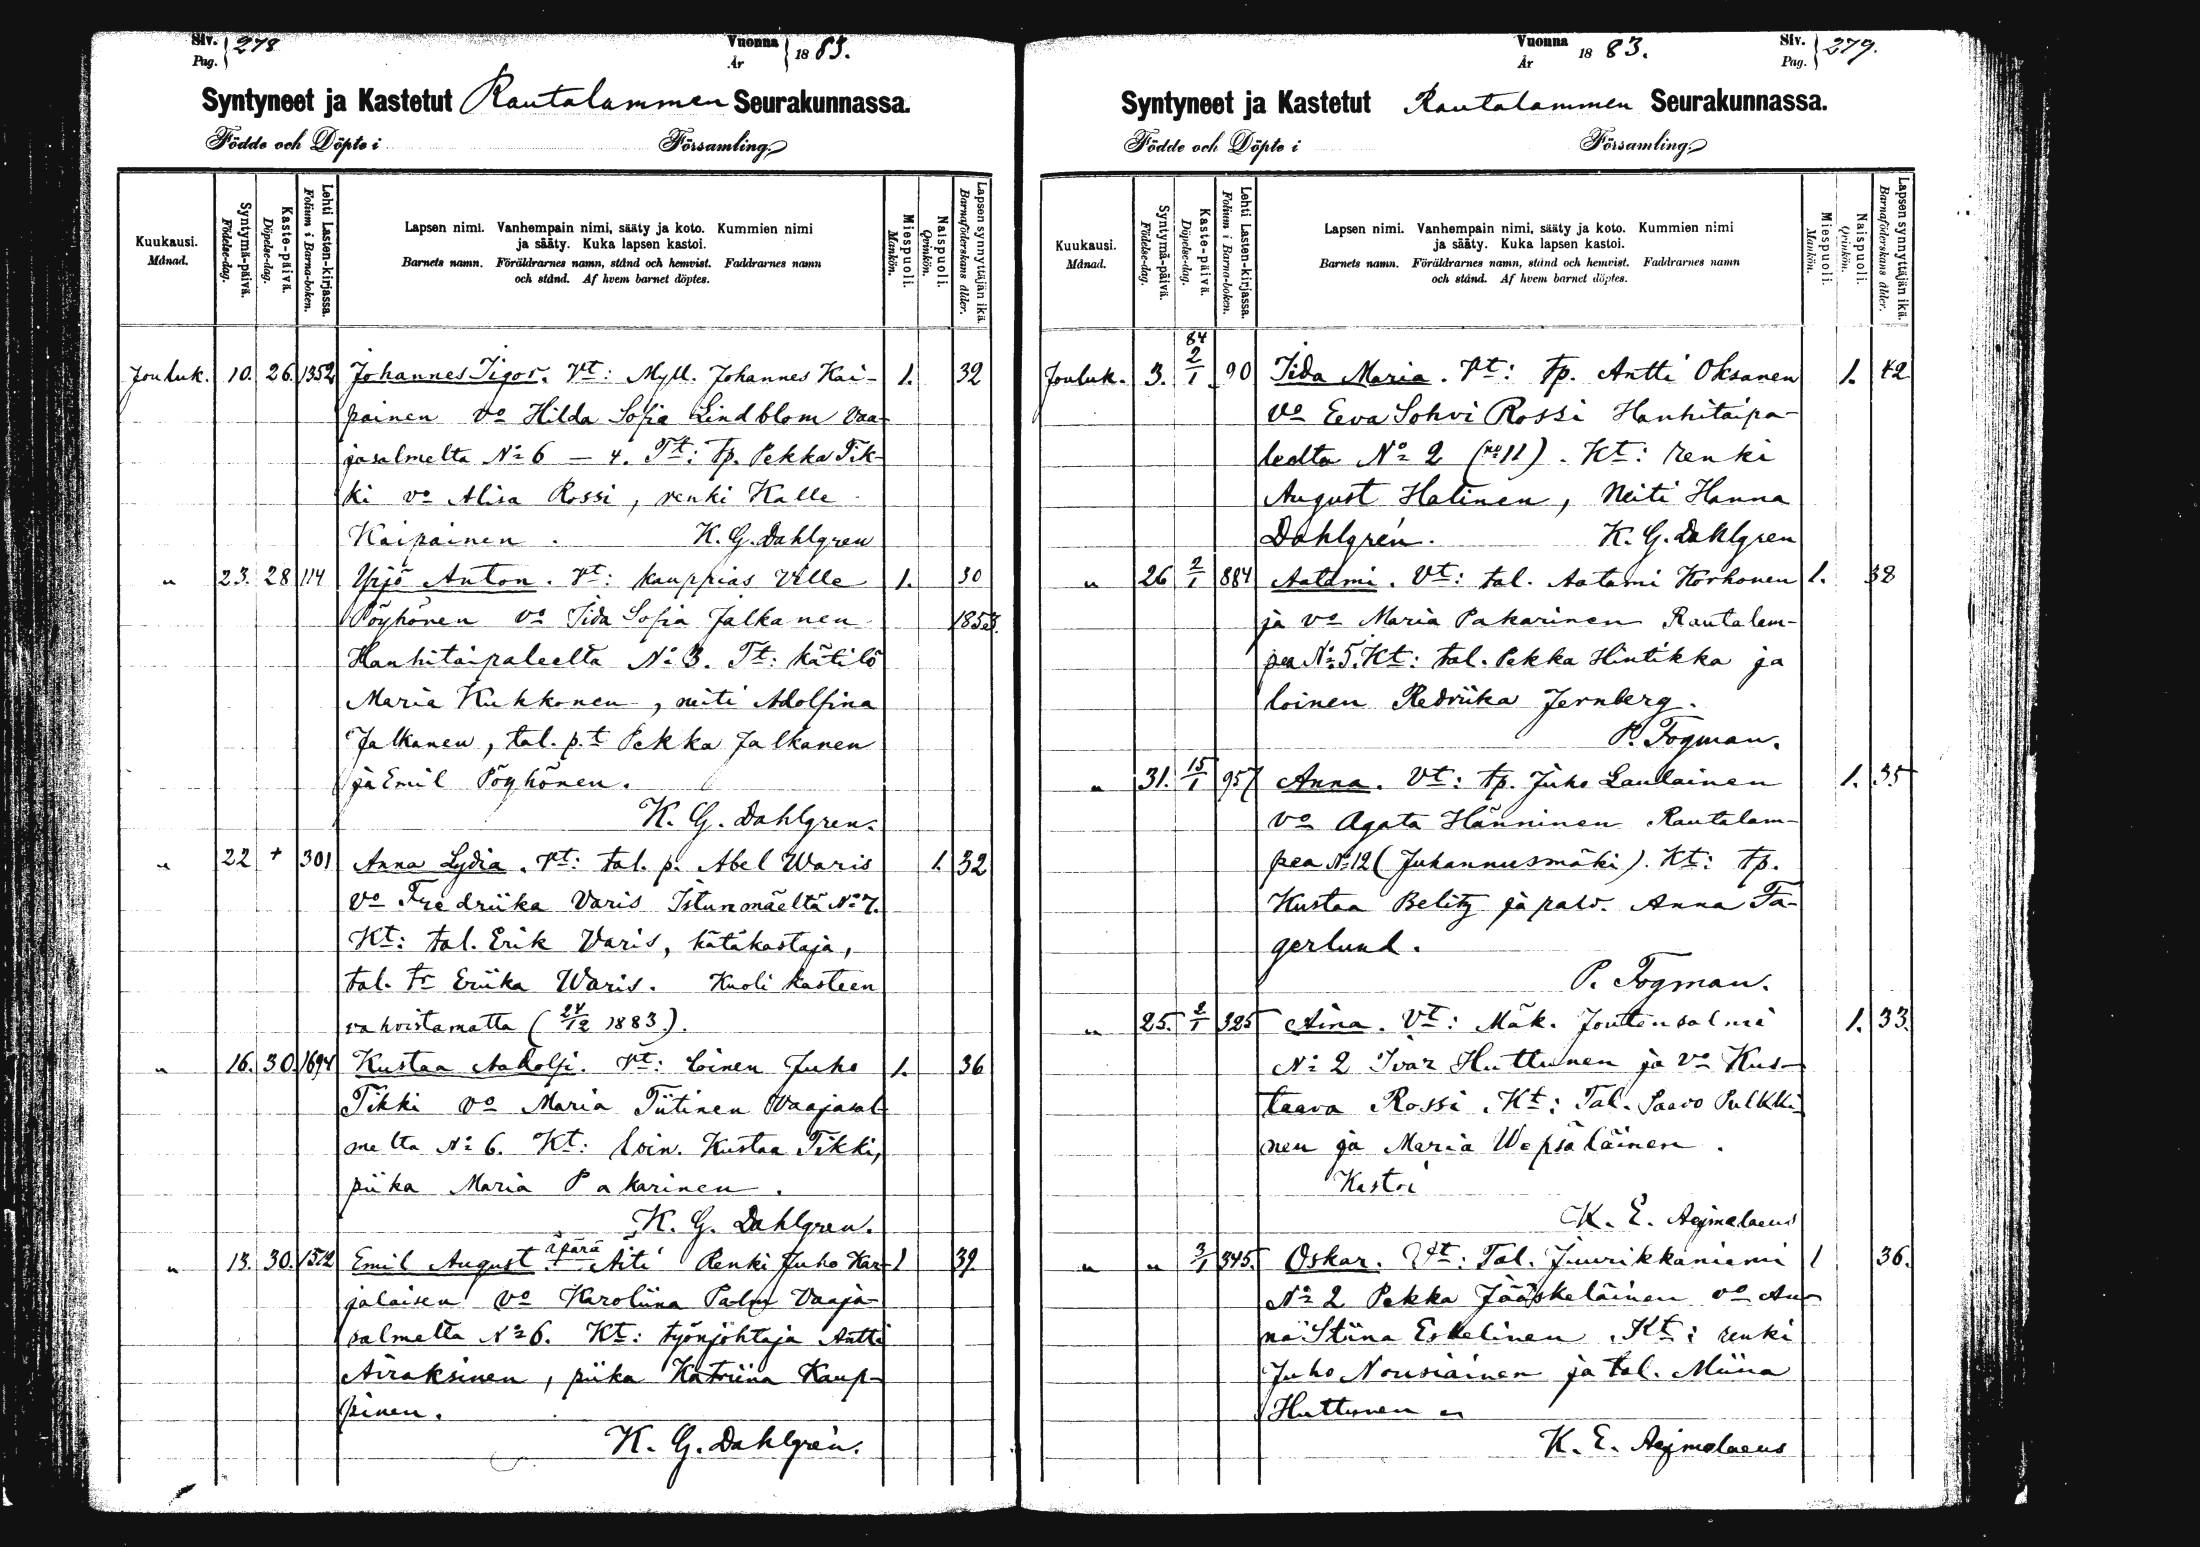 Siv. 278 Vuonna 1883.
Pag. År
Syntyneet ja Kastetut Rautalammen Seurakunnassa.
Födde och Döpte i Församling.
Kuukausi. Månad.
Syntymä-päivä. Födelse-dag.
Kaste-päivä. Döpelse-dag.
Lehti Lasten-kirjassa. Folium i Barna-boken.
Lapsen nimi. Vanhempain nimi, sääty ja koto. Kummien nimi
ja sääty. Kuka lapsen kastoi.
Barnets namn. Föräldrarnes namn, stånd och hemvist. Faddrarnes namn
och stånd. Af hvem barnet döptes.
Miespuoli. Mankön.
Naispuoli. Qvinkön.
Lapsen synnyttäjän ikä. Barnaföderskans ålder.
Jouluk. 10. 26. 1352 Johannes Iigor. Vt: Myll. Johannes Kai- 1. 32
painen vo Hilda Sofia Lindblom Vaa-
jasalmelta No 6 — 4. Tt: tp. Pekka Tik-
ki vo Alisa Rossi, renki Kalle
Kaipainen. K. G. Dahlgren
" 23. 28 114 Yrjö Anton. Vt: kauppias Ville 1. 30
Pöyhönen vo Iida Sofia Jalkanen 1853.
Hanhitaipaleelta No 3. Tt: kätilö
Maria Kukkonen, neiti Adolfina
Jalkanen, tal. p.t Pekka Jalkanen
ja Emil Pöyhönen.
K. G. Dahlgren.
" 22 + 301 Anna Lydia. Vt: tal. p. Abel Waris 1. 32
vo Fredriika Varis Istunmäeltä No 7.
Kt: tal. Erik Varis, hätäkastaja,
tal. tr Eriika Waris. Kuoli kasteen
vahvistamatta (24/12 1883.).
" 16. 30. 1694 Kustaa Aadolfi. Vt: loinen Juho 1. 36
Tikki vo Maria Tiitinen Vaajasal-
melta No 6. Kt: loin. Kustaa Tikki,
piika Maria Pakarinen.
K. G. Dahlgren.
" 13. 30. 1512 Emil August. äpärä Äiti Renki Juho Kar- 1 39
jalaisen vo Karoliina Palm Vaaja-
salmelta No 6. Kt: työnjohtaja Antti
Airaksinen, piika Katriina Kaup-
pinen.
K. G. Dahlgrén.
Vuonna 1883. Siv. 279.
År Pag.
Syntyneet ja Kastetut Rautalammen Seurakunnassa.
Födde och Döpte i Församling.
Kuukausi. Månad.
Syntymä-päivä. Födelse-dag.
Kaste-päivä. Döpelse-dag.
Lehti Lasten-kirjassa. Folium i Barna-boken.
Lapsen nimi. Vanhempain nimi, sääty ja koto. Kummien nimi
ja sääty. Kuka lapsen kastoi.
Barnets namn. Föräldrarnes namn, stånd och hemvist. Faddrarnes namn
och stånd. Af hvem barnet döptes.
Miespuoli. Mankön.
Naispuoli. Qvinkön.
Lapsen synnyttäjän ikä. Barnaföderskans ålder.
84
Jouluk. 3. 2/1 90 Iida Maria. Vt: tp. Antti Oksanen 1. 42
vo Eeva Sohvi Rossi Hanhitaipa-
leelta No 2 (no 11). Kt: renki
August Hatinen, Neiti Hanna
Dahlgrén. K. G. Dahlgren
" 26 2/1 884 Aatami. Vt: tal. Aatami Korhonen 1. 38
ja vo Maria Pakarinen Rautalam-
pea No 5. Kt: tal. Pekka Hintikka ja
loinen Redriika Jernberg.
P. Fogman.
" 31. 15/1 957 Anna. Vt: tp. Juho Laulainen 1. 35
vo Agata Hänninen Rautalam-
pea No 12 (Juhannusmäki). Kt: tp.
Kustaa Belitz ja palv. Anna Fa-
gerlund.
P. Fogman.
" 25. 2/1 325 Aina. Vt: Mäk. Jouttensalmi 1. 33.
No 2 Ivar Huttunen ja vo Kus-
taava Rossi. Kt: Tal. Paavo Pulkki-
nen ja Maria Wepsäläinen.
Kastoi
K. E. Aejmelaeus
" " 3/1 345. Oskar. Vt: Tal. Juurikkaniemi 1 36.
No 2 Pekka Jääskeläinen vo An-
na Stiina Eskelinen. Kt: renki
Juho Nousiainen ja tal. Miina
Huttunen
K. E. Aejmelaeus